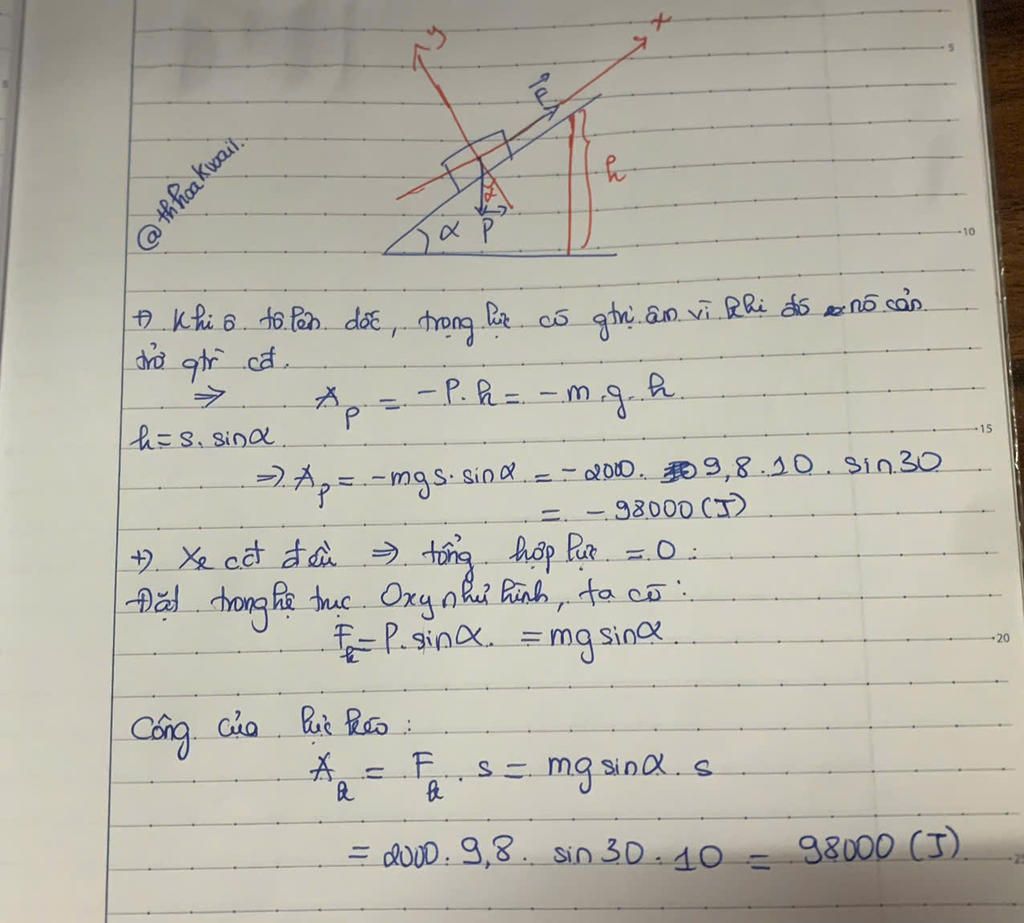 y
x
F
h
@thhoakwait.
α
α P
5
10
+) Khi ô tô lên dốc, trọng lực có gtrị âm vì khi đó nó cản
trở qtr cđ.
⇒ A_P = -P.h = -m.g.h
h = s. sinα
15
⇒ A_P = -mgs.sinα = -2000. 9,8.10. sin30
= - 98000 (J)
+) Xe cđ đều ⇒ tổng hợp lực = 0 :
Đặt trong hệ trục Oxy như hình, ta có:
F_k = P.sinα. = mgsinα
20
Công của lực kéo :
A_k = F_k . s = mgsinα. s
= 2000. 9,8. sin30.10 = 98000 (J)
25